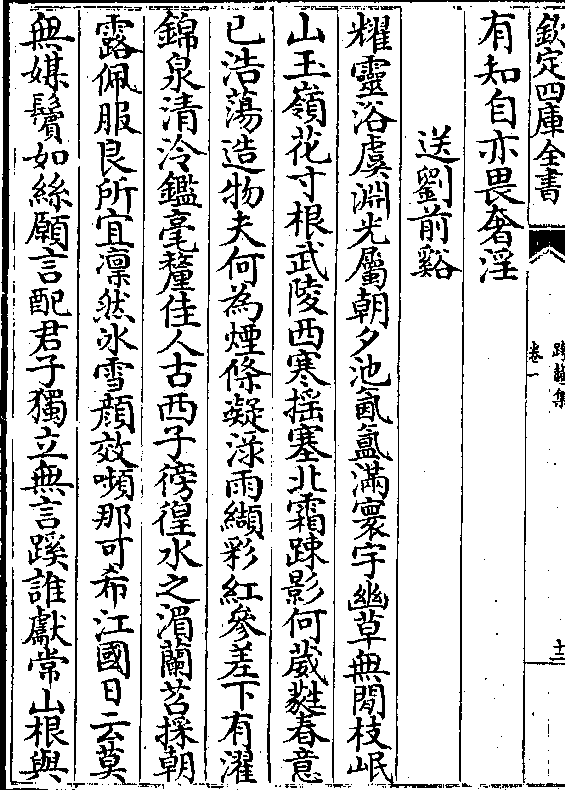 欽定四庫全書
疎蓏集
卷一
十二
有知自亦畏奢淫
送劉前谿
耀靈浴虞淵光屬朝夕池氤氳滿寰宇幽草無閒枝岷
山玉嶺花寸根武陵西寒摇塞北霜踈影何葳蕤春意
已浩蕩造物夫何為煙條凝渌雨纈彩紅參差下有濯
錦泉清泠鑑毫釐佳人古西子徬徨水之湄蘭苕採朝
露佩服良所宜凛然冰雪顔效嚬那可希江國日云莫
無媒鬢如絲願言配君子獨立無言蹊誰獻常山根與